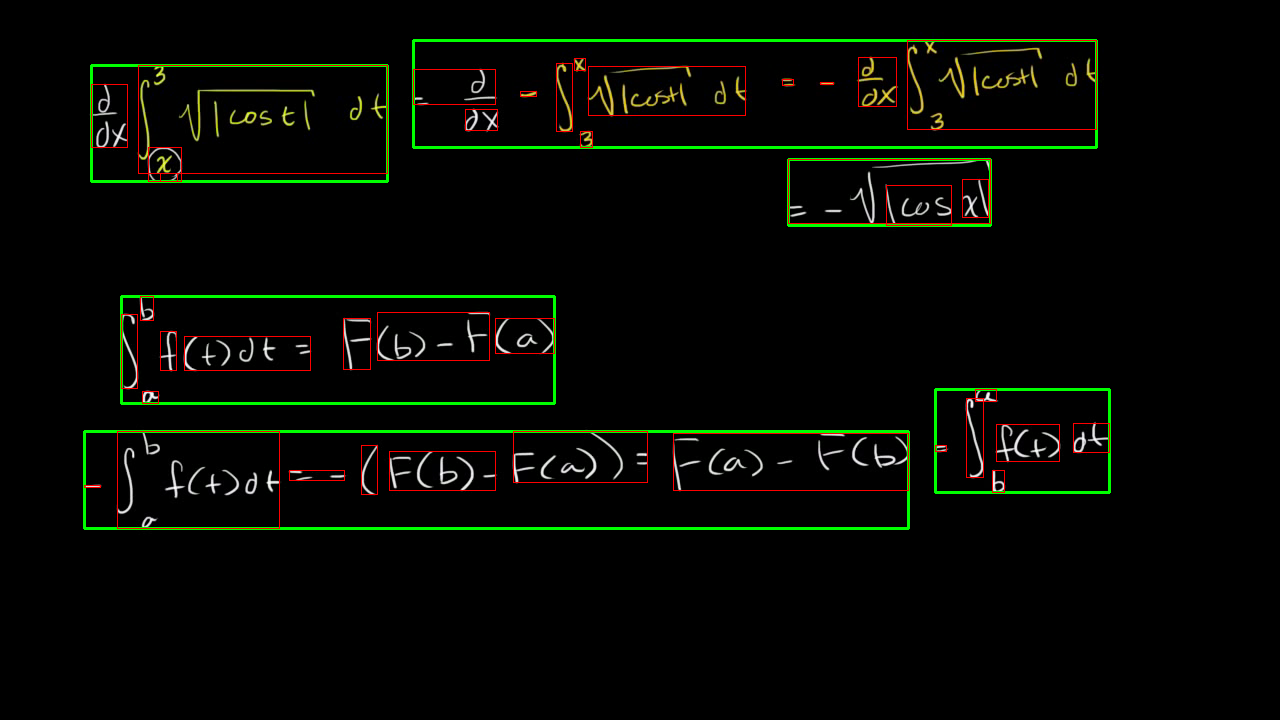 d/dx ∫_x^3 √|cos t| dt = d/dx - ∫_3^x √|cost| dt = - d/dx ∫_3^x √|cost| dt
= -√|cos x|
∫_a^b f(t)dt = F(b) - F(a)
- ∫_a^b f(t)dt = - (F(b) - F(a)) = F(a) - F(b) = ∫_b^a f(t) dt